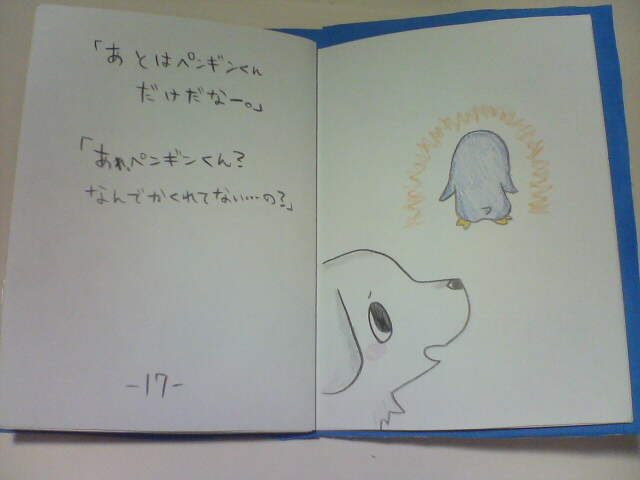 「あとはペンギンくん
だけだなー。」
「あれ、ペンギンくん?
なんでかくれてない…の?」
-17-